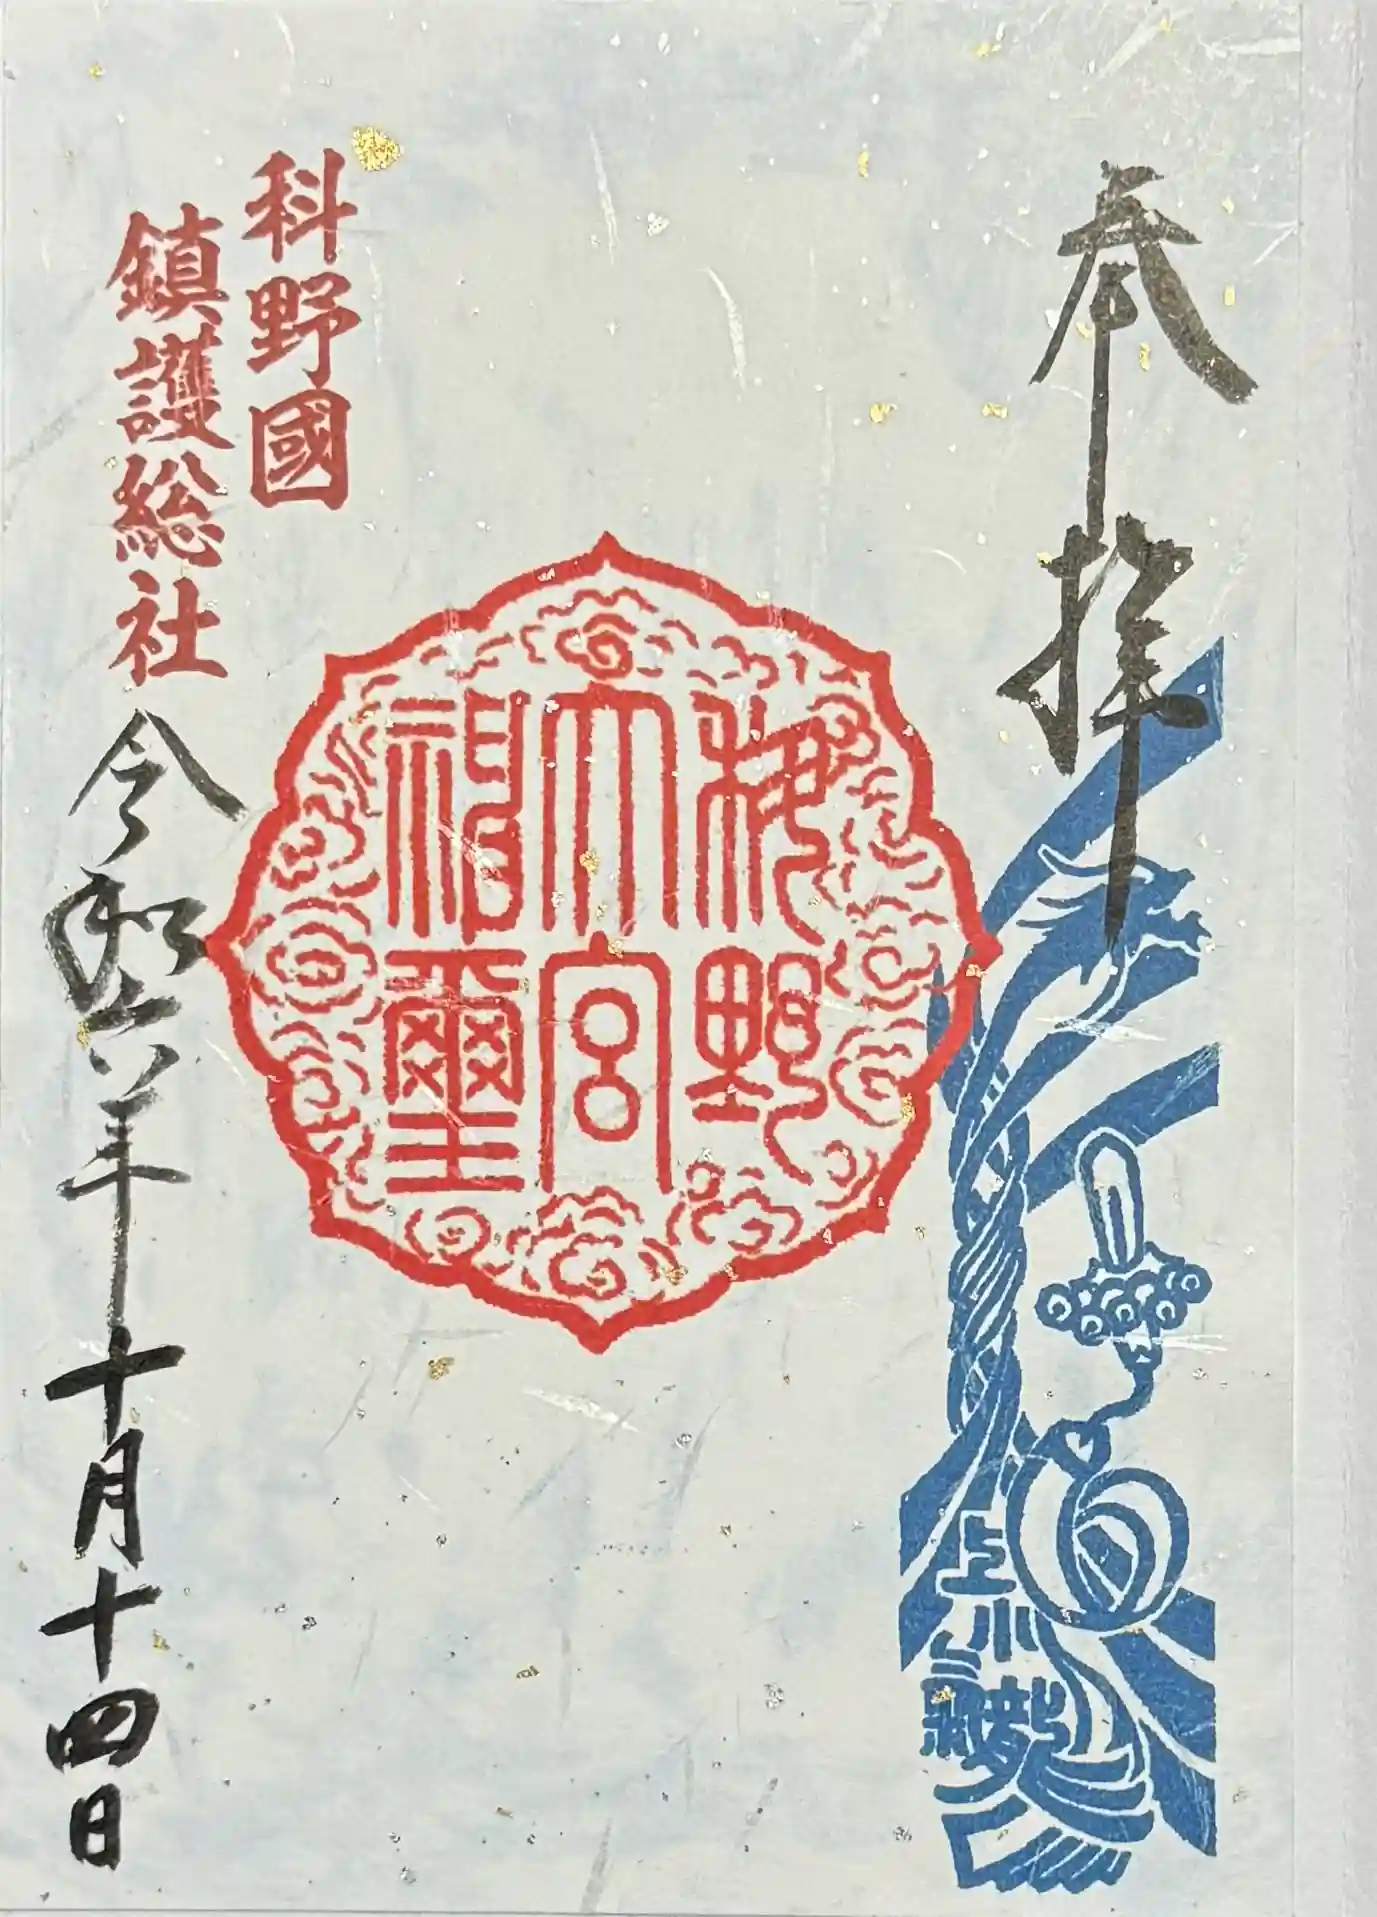 奉拝
上小
科野
大宮
璽
科野國
鎮護総社
令和六年十月十四日